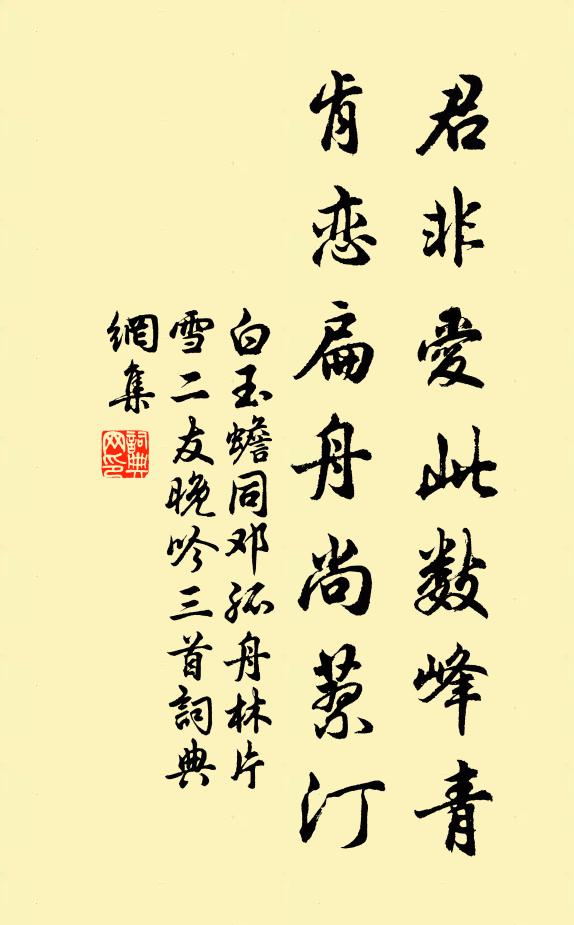 君非爱此数峰青
肯恋扁舟尚蓼汀
白玉蟾同邓孤舟林片
雪二友晚吟三首詞典
網集
詞典
网印